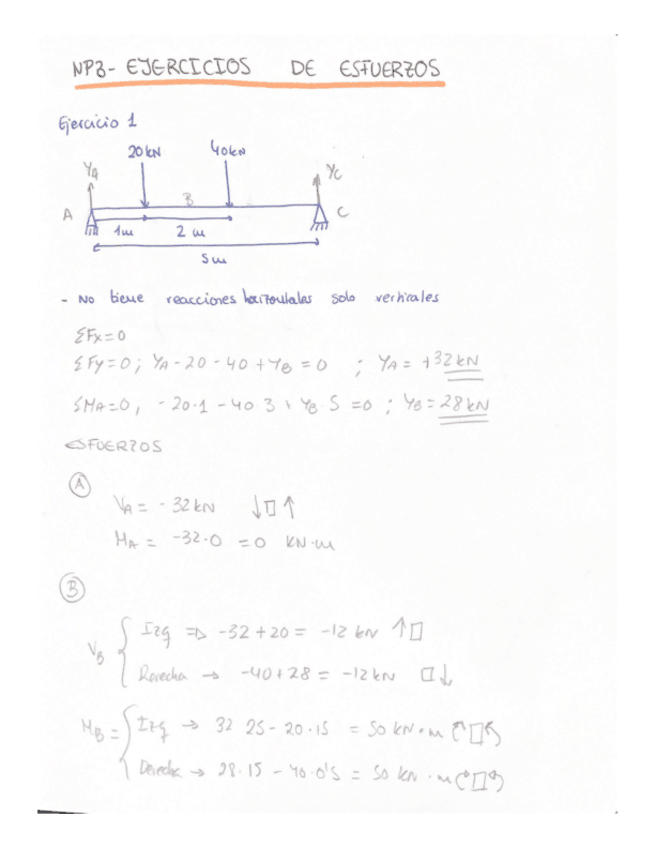 NP3- EJERCICIOS DE ESFUERZOS
Ejercicio 1
20 kN 40kN
YA YC
B
A C
1m 2 m
5m
- No tiene reacciones horizontales solo verticales
ΣFx=0
ΣFy=0; YA-20-40+YB=0 ; YA= +32kN
ΣMA=0, -20·1-40·3+YB·5=0 ; YB=28kN
ESFUERZOS
A
VA= -32kN ↓□↑
MA= -32·0 =0 KN·m
B
VB { Izq ⇒ -32+20= -12 kN ↑□
Derecha → -40+28= -12kN □↓
MB= { Izq → 32·25-20·15 = 50 kN·m
Derecha → 28·15-40·0'5 = 50 kN·m